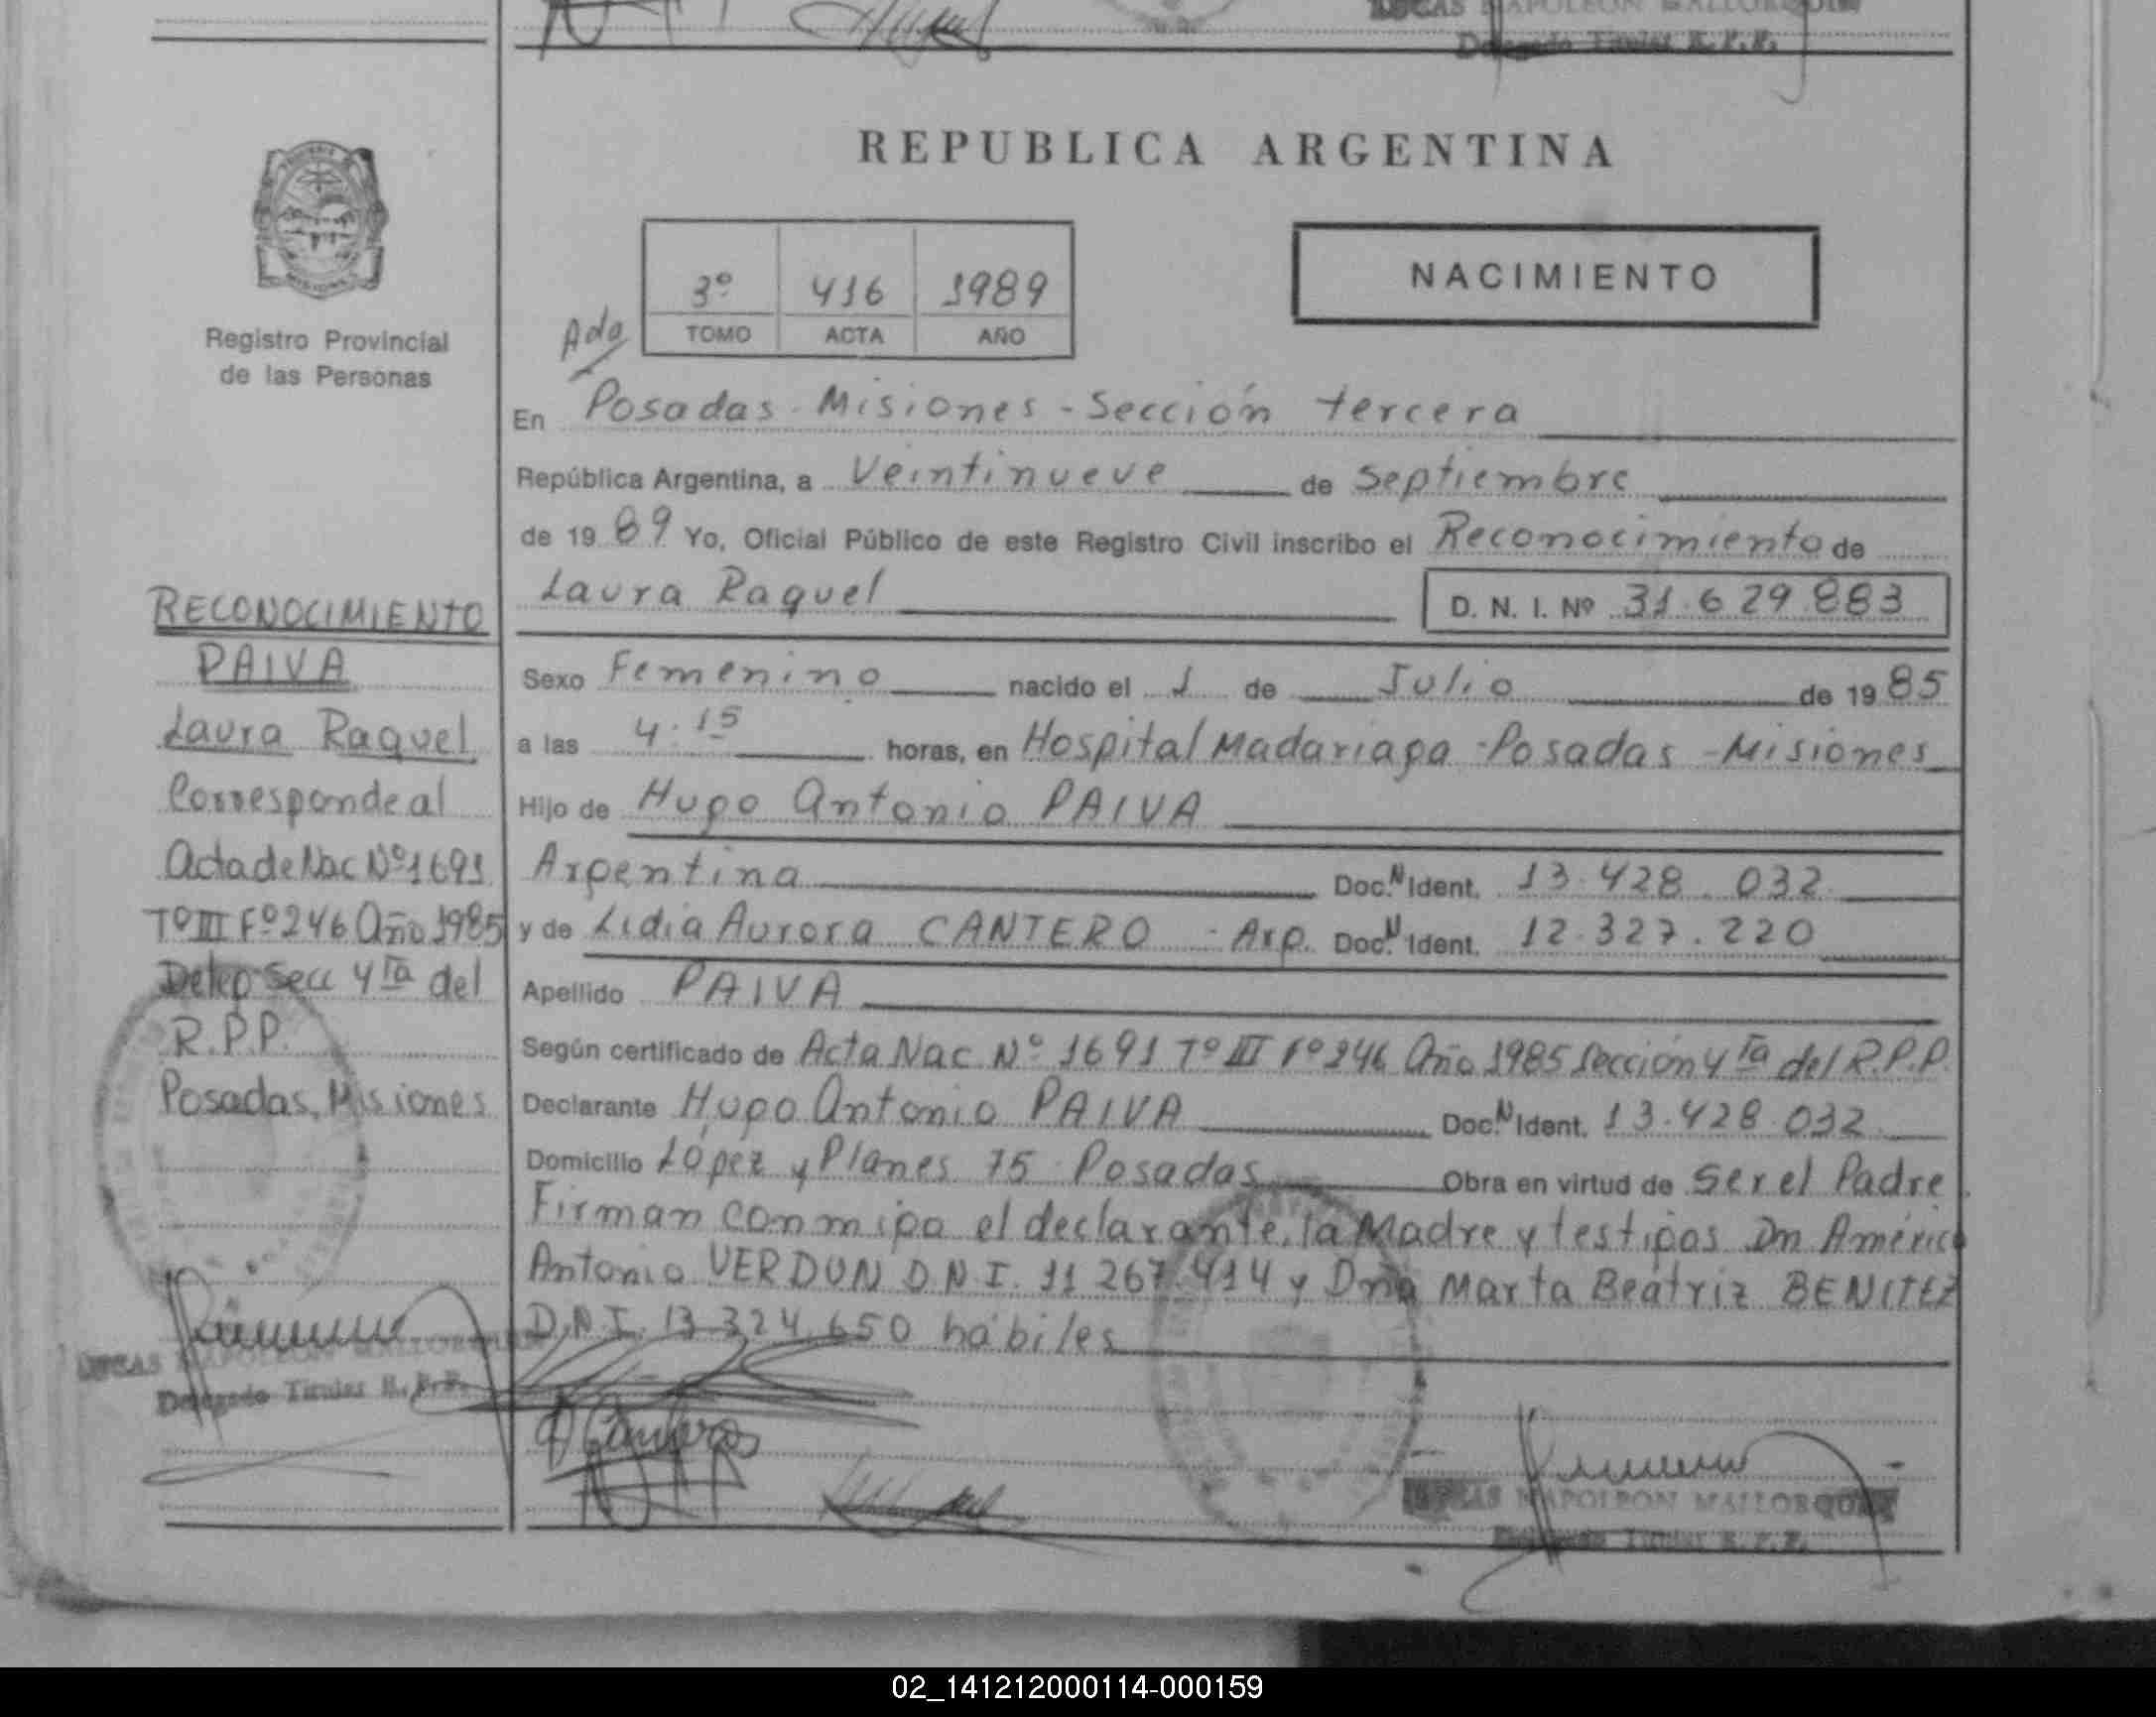 NAPOLEON MALLORQUIN
Delegado Titular R.P.P.
REPUBLICA ARGENTINA
NACIMIENTO
3º 416 1989
TOMO ACTA AÑO
Registro Provincial
de las Personas
En Posadas - Misiones - Sección tercera
República Argentina, a Veintinueve de Septiembre
de 1989 Yo, Oficial Público de este Registro Civil inscribo el Reconocimiento de
Laura Raquel D. N. I. Nº 31.629.883
Sexo Femenino nacido el 1 de Julio de 1985
a las 4.15 horas, en Hospital Madariaga - Posadas - Misiones
Hijo de Hugo Antonio PAIVA
Argentina Doc. N Ident. 13.428.032
y de Lidia Aurora CANTERO - Arg. Doc. N Ident. 12.327.220
Apellido PAIVA
Según certificado de Acta Nac. Nº 1691 Tº III Fº 246 Año 1985 Sección 4ta del R.P.P.
Declarante Hugo Antonio PAIVA Doc. N Ident. 13.428.032
Domicilio López y Planes 75 Posadas Obra en virtud de Ser el Padre
Firman conmigo el declarante, la Madre y testigos Dn Américo
Antonio VERDUN D.N.I. 11.267.414 y Dña Marta Beatriz BENITEZ
D.N.I. 13.324.650 hábiles
RECONOCIMIENTO
PAIVA
Laura Raquel
Corresponde al
Acta de Nac Nº 1691
Tº III Fº 246 Año 1985
Deleg Secc 4ta del
R.P.P.
Posadas, Misiones
LUCAS NAPOLEON MALLORQUIN
Delegado Titular R.P.P.
LUCAS NAPOLEON MALLORQUIN
Delegado Titular R.P.P.
02_141212000114-000159